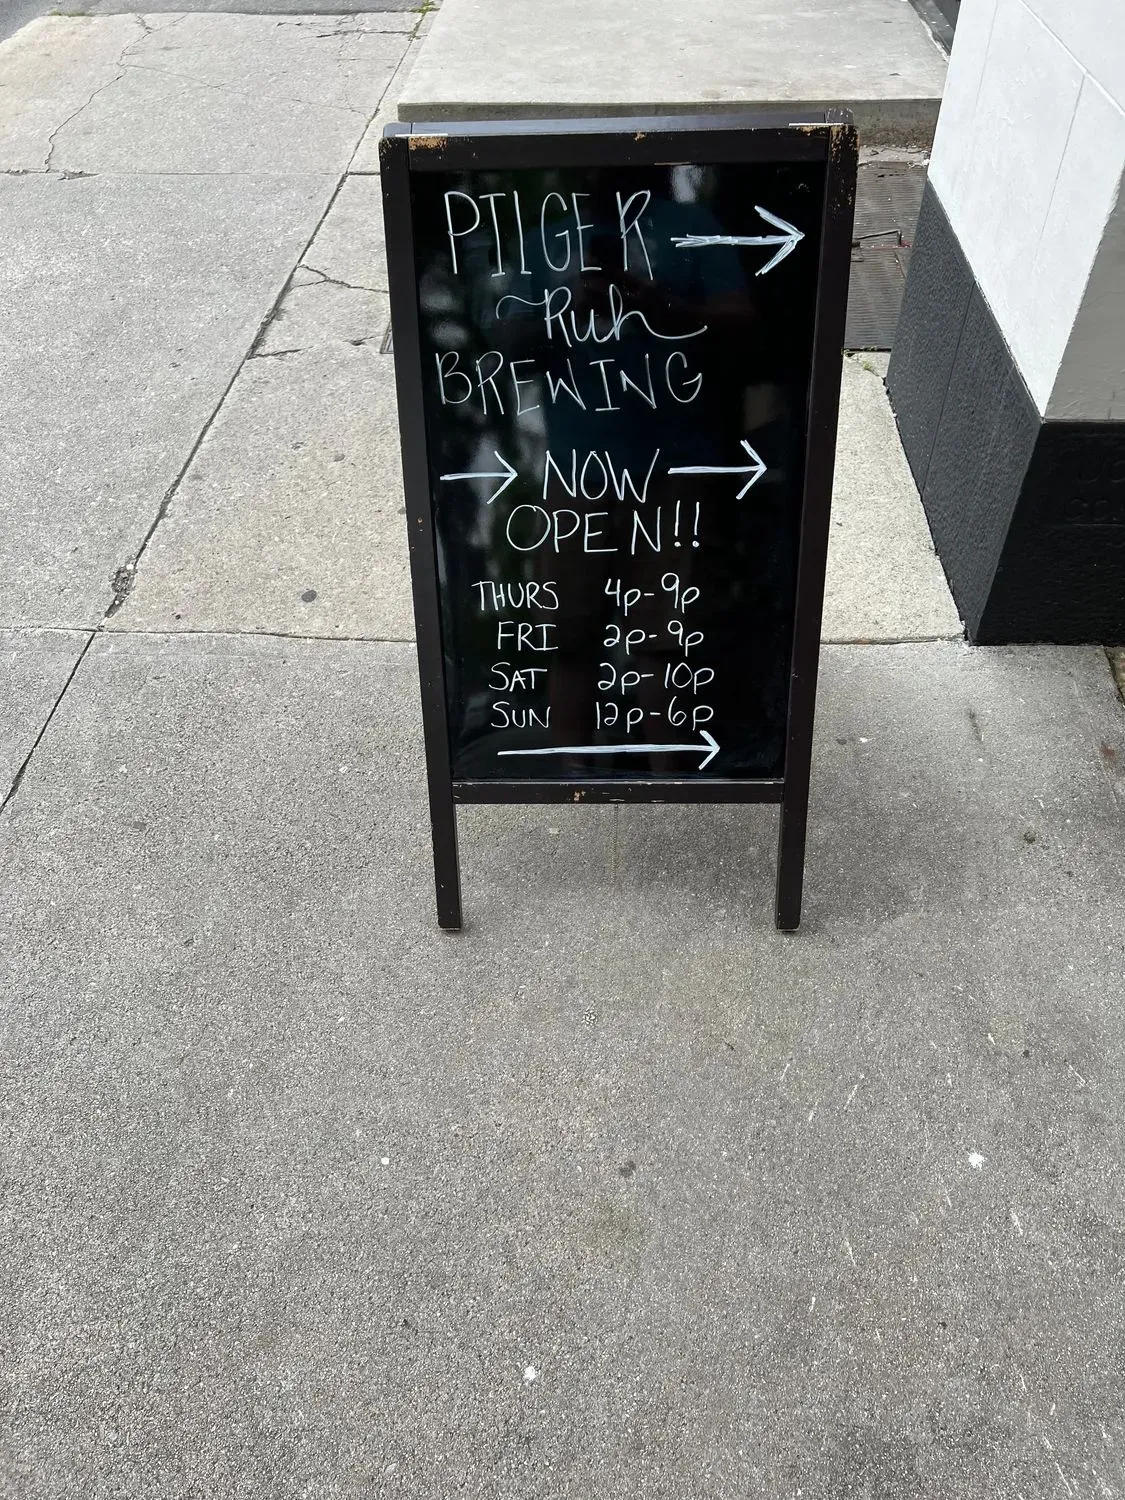 PILGER →
~Ruh
BREWING
→ NOW →
OPEN!!
THURS 4p-9p
FRI 2p-9p
SAT 2p-10p
SUN 12p-6p
→